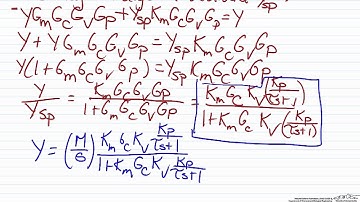 -YGmGcGvGp+YspKmGcGvGp=Y Ysp
Y+YGmGcGvGp=YspKmGcGvGp
Y(1+GmGcGvGp)=YspKmGcGvGp
Y/Ysp=KmGcGvGp/1+GmGcGvGp=KmGcKv(Kp/τs+1)/1+KmGcKv(Kp/τs+1)
Y=(M/s)KmGcKv Kp/τs+1/1+KmGcKv Kp/τs+1